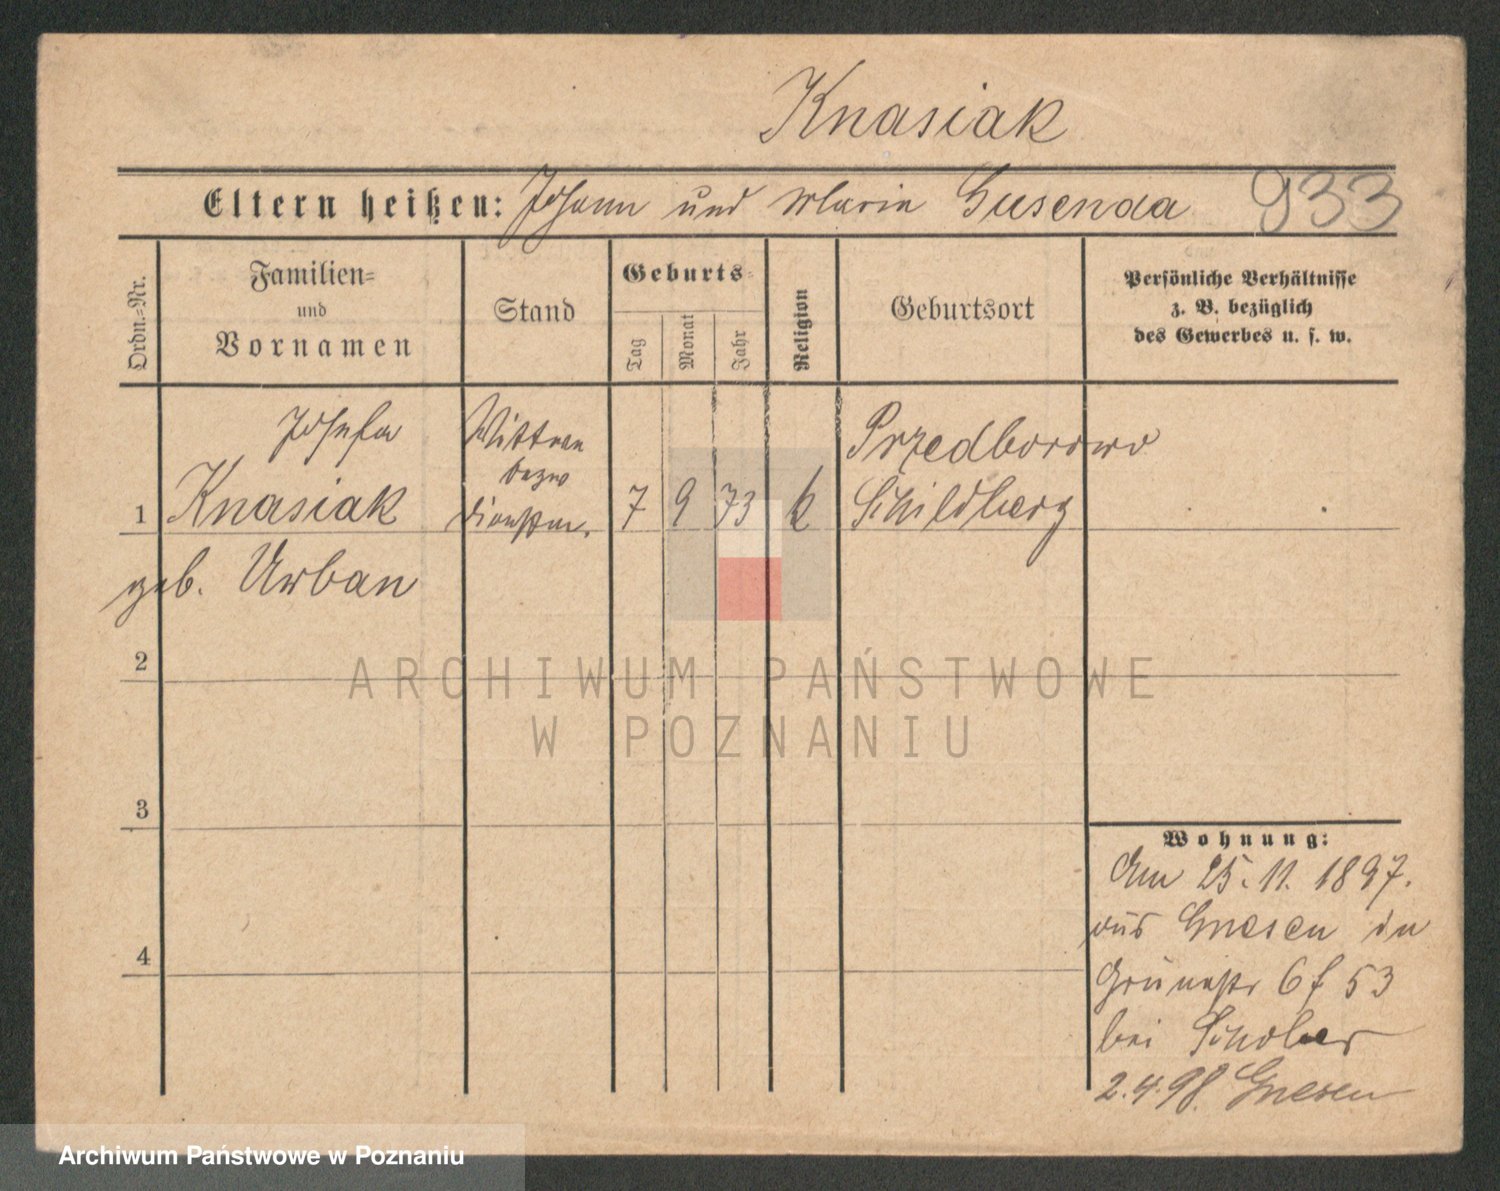 Knasiak
Eltern heißen: Johann und Maria Gusenda 933
Ordn.=Nr.
Familien=
und
Vornamen
Stand
Geburts=
Tag
Monat
Jahr
Religion
Geburtsort
Persönliche Verhältnisse
z. B. bezüglich
des Gewerbes u. s. w.
Josefa
Knasiak
geb. Urban
Wittwe
bezw
1
7 9 73 k
Przedborowo
Schildberg
2
3
4
Wohnung:
Am 25.11.1897.
aus Gnesen in
Grünestr 6 f 53
bei Schober
2.4.98. Gnesen
ARCHIWUM PAŃSTWOWE
W POZNANIU
Archiwum Państwowe w Poznaniu